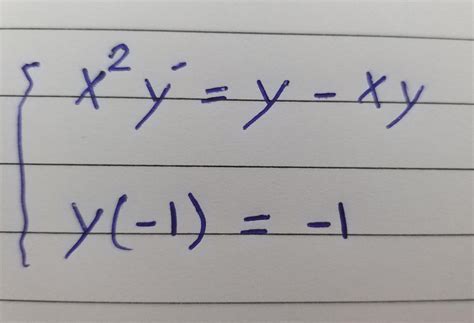 x² y' = y - xy
y(-1) = -1